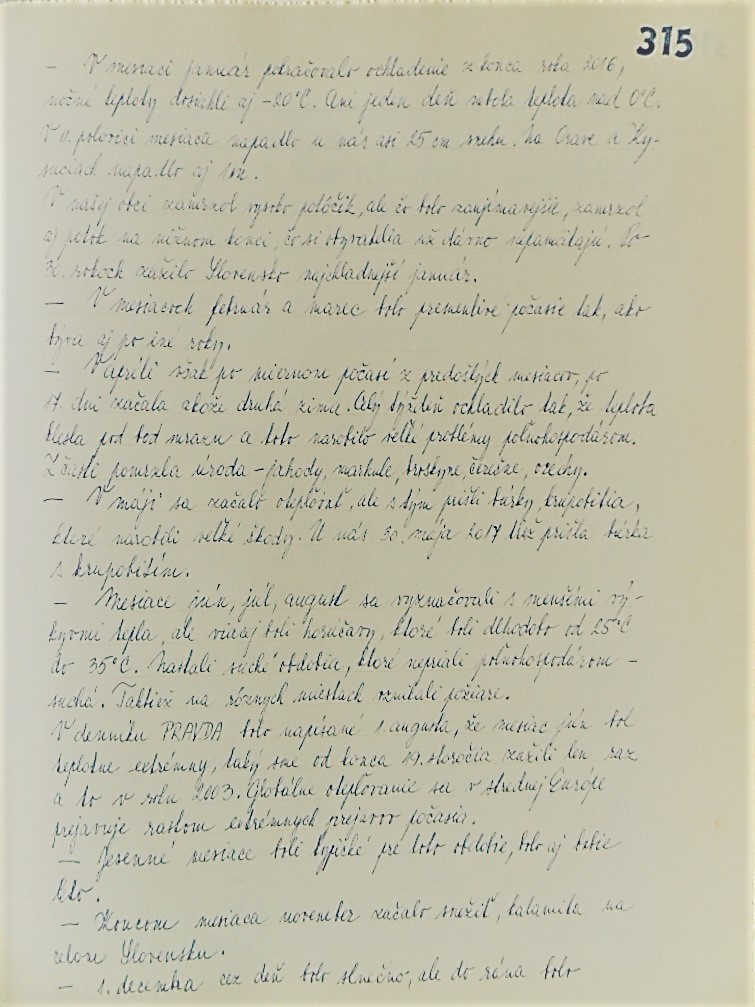 315
– V mesiaci január potračovalo ochladenie z konca roka 2016,
nočné teploty dosiahli aj -20°C. Ani jeden deň nebola teplota nad 0°C.
V II. polovici mesiaca napadlo u nás asi 25 cm snehu. Na Orave a Ky-
suciach napadlo aj 1m.
V našej obci zamrzol vysoko potôčik, ale čo bolo zaujímavejšie, zamrzol
aj potok na nižnom konci, čo si obyvatelia už dávno nepamätajú. Po
30. rokoch zažilo Slovensko najchladnejší január.
– V mesiacoch február a marec bolo premenlivé počasie tak, ako
býva aj po iné roky.
– V apríli však po miernom počasí z predošlých mesiacov, po
17. dni začala akože druhá zima. Celý týždeň ochladilo tak, že teplota
klesla pod bod mrazu a toto narobilo veľké problémy poľnohospodárom.
Z časti pomrzla úroda – jahody, marhule, broskyne, čerešne, orechy.
– V máji sa začalo otepľovať, ale s tým prišli búrky, krupobitia,
ktoré narobili veľké škody. U nás 30. mája 2017 tiež prišla búrka
s krupobitím.
– Mesiace jún, júl, august sa vyznačovali s menšími vý-
kyvmi tepla, ale viacej boli horúčavy, ktoré boli dlhodobo od 25°C
do 35°C. Nastali suché obdobia, ktoré nepriali poľnohospodárom –
suchá. Taktiež na rôznych miestach vznikali požiare.
V denníku PRAVDA bolo napísané 1. augusta, že mesiac jún bol
teplotne extrémny, taký sme od konca 19. storočia zažili len raz
a to v roku 2003. Globálne otepľovanie sa v strednej Európe
prejavuje rastom extrémnych prejavov počasia.
– Jesenné mesiace boli typické pre toto obdobie, bolo aj babie
leto.
– Koncom mesiaca november začalo snežiť, kalamita na
celom Slovensku.
– 1. decembra cez deň bolo slnečno, ale do rána bolo